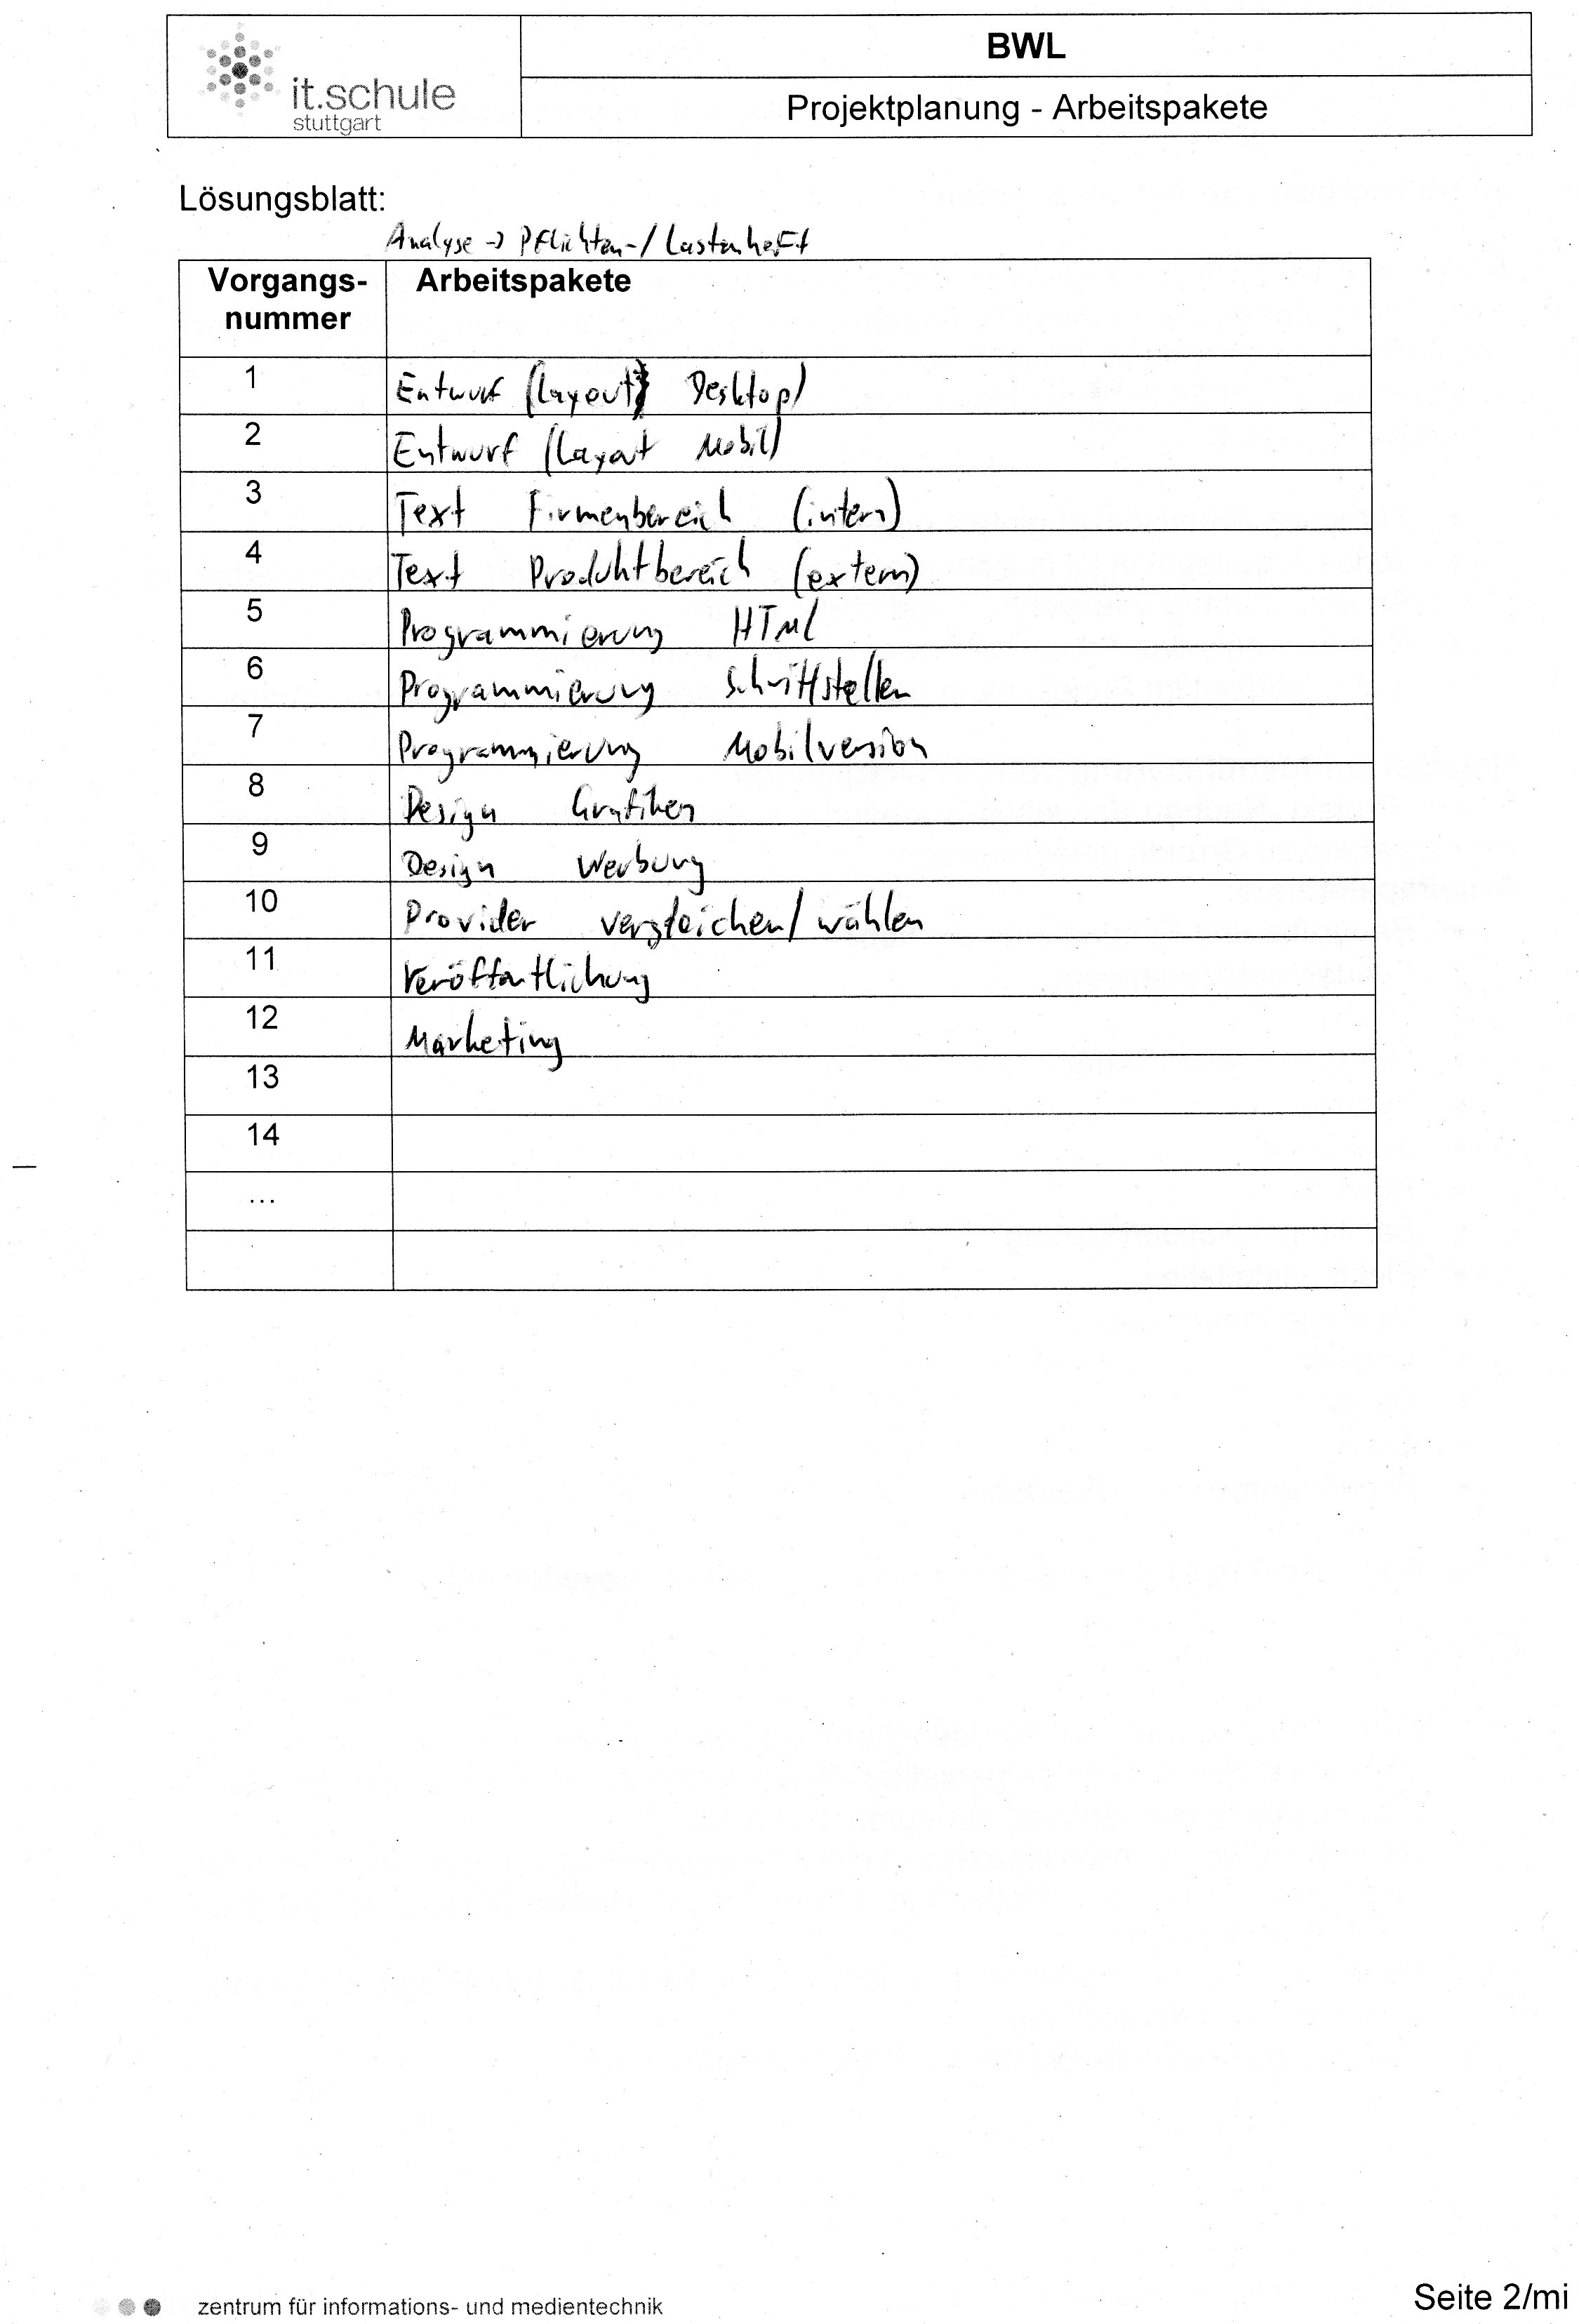 it.schule
stuttgart
BWL
Projektplanung - Arbeitspakete
Lösungsblatt:
Analyse -> Pflichten-/Lastenheft
Vorgangs-
nummer
Arbeitspakete
1 Entwurf (Layout Desktop)
2 Entwurf (Layout Mobil)
3 Text Firmenbereich (intern)
4 Text Produktbereich (extern)
5 Programmierung HTML
6 Programmierung Schnittstellen
7 Programmierung Mobilversion
8 Design Grafiken
9 Design Werbung
10 Provider vergleichen/wählen
11 Veröffentlichung
12 Marketing
13
14
...
zentrum für informations- und medientechnik
Seite 2/mi